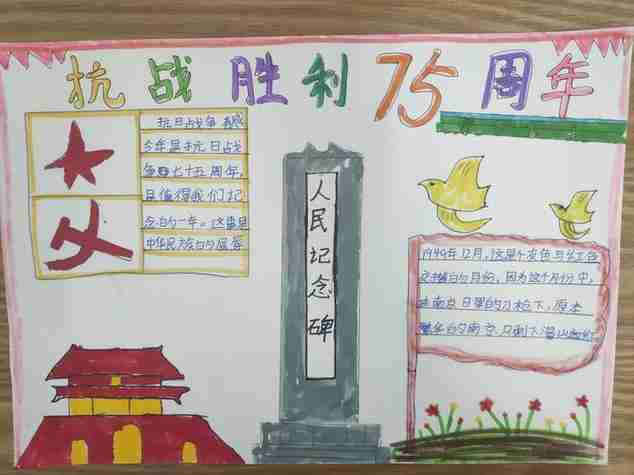 抗战胜利75周年
抗日战争
今年是抗日战
争 七十五周年,
是值得我们纪
念的一年。这
中华民族的屈辱
人民纪念碑
1949年12月,这是个灰色与红色
的月份,因为这个月份中,
在南京日军的刀枪下,原本
繁华的南京只剩下